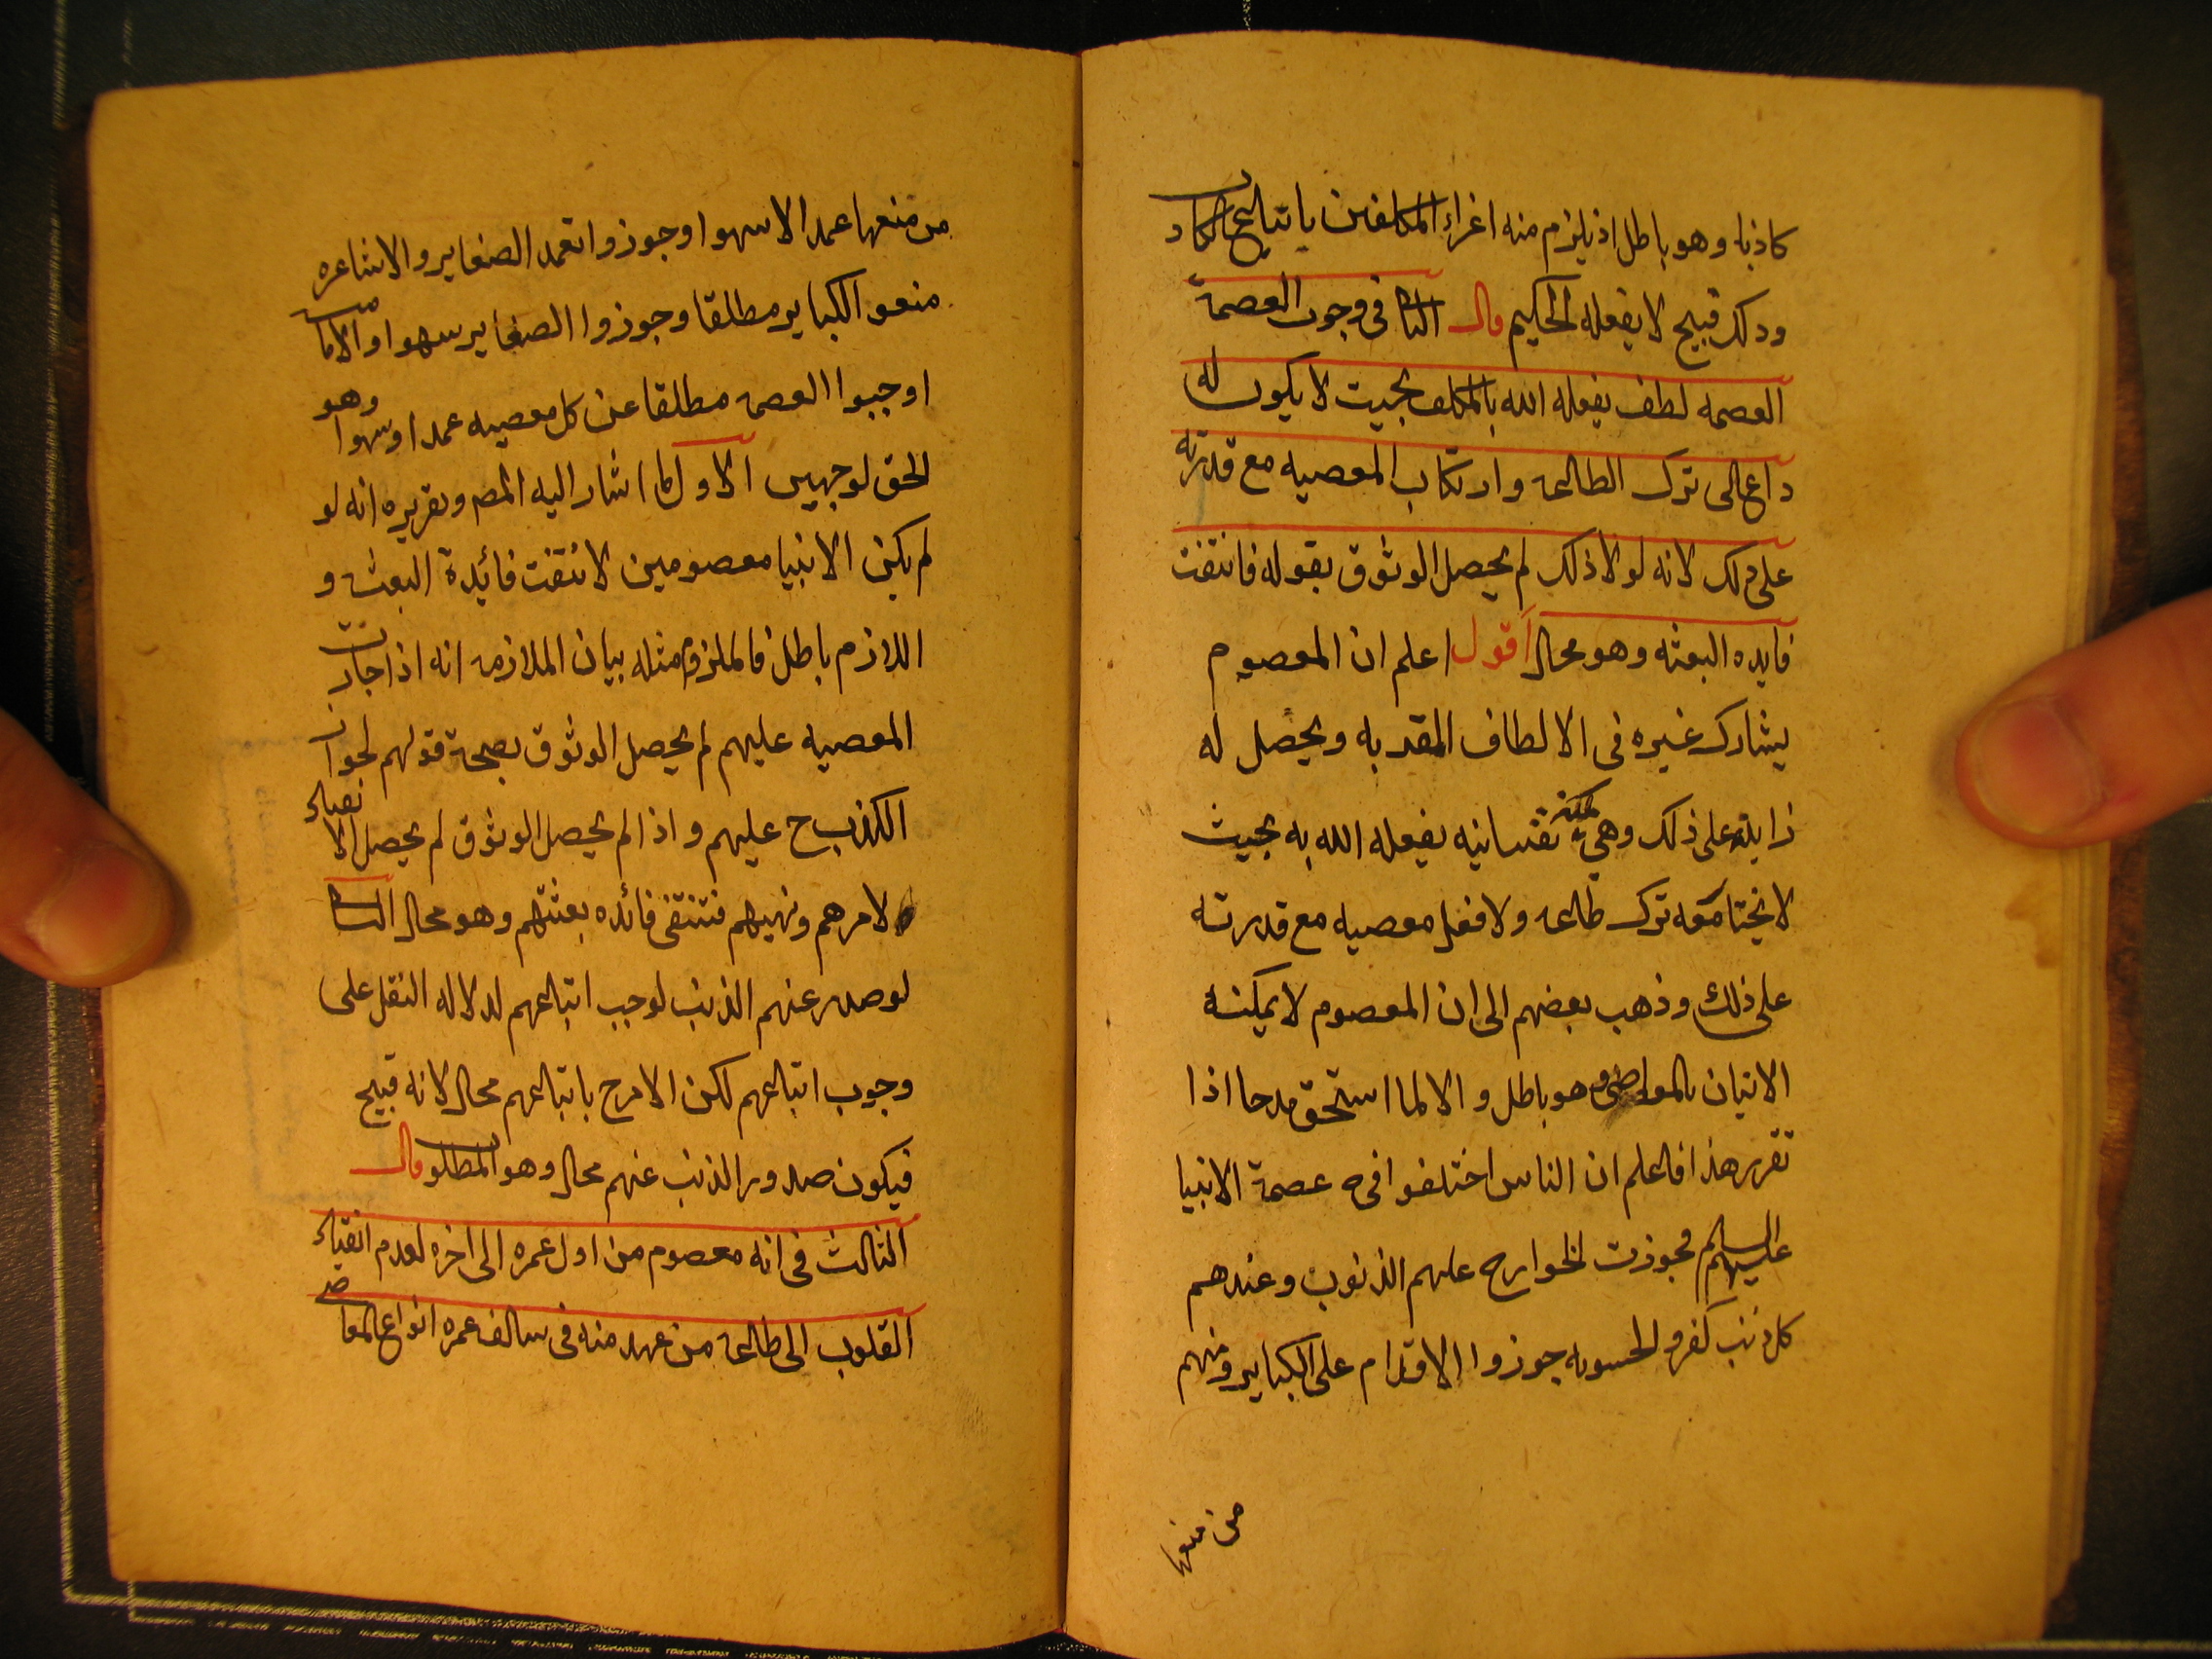 كاذبا وهو باطل اذ يلزم منه اغراء المكلفين باتباع الكاذب
وذلك قبيح لا يفعله الحكيم قال الثانى فى وجوب العصمة
العصمه لطف يفعله الله بالمكلف بحيث لا يكون له
داع الى ترك الطاعه وارتكاب المعصيه مع قدرته
على ذلك لانه لولا ذلك لم يحصل الوثوق بقوله فانتفت
فايده البعثه وهو محال اقول اعلم ان المعصوم
يشارك غيره فى الالطاف المقربه ويحصل له
زايدة على ذلك وهى نفسانيه يفعله الله به بحيث
لا يختا معه ترك طاعه ولا فعل معصيه مع قدرته
على ذلك وذهب بعضهم الى ان المعصوم لا يمكنه
الاتيان بالمعاصى وهو باطل والا لما استحق مدحا اذا
تقرر هذا فاعلم ان الناس اختلفوا فى عصمة الانبيا
عليهم السلم فجوزت الخوارج عليهم الذنوب وعندهم
كل ذنب كفر والحسويه جوزوا الاقدام على الكباير ومنهم
من منعها
من منعها عمدا لا سهوا وجوزوا تعمد الصغاير والاشاعره
منعو الكباير مطلقا وجوزوا الصغاير سهوا والامامية
اوجبوا العصمه مطلقا عن كل معصيه عمدا وسهوا وهو
الحق لوجهين الاول ما اشار اليه المصـ وتقريره انه لو
لم يكن الانبيا معصومين لانتفت فائدة البعثه و
اللازم باطل فالملزوم مثله بيان الملازمه انه اذا جازت
المعصيه عليهم لم يحصل الوثوق بصحة قولهم لجواز
الكذب ح عليهم واذا لم يحصل الوثوق لم يحصل الانقياد
لامرهم ونهيهم فتنتفى فائده بعثتهم وهو محال الثانى
لو صدر عنهم الذنب لوجب اتباعهم لدلاله النقل على
وجوب اتباعهم لكن الامر ح باتباعهم محال لانه قبيح
فيكون صدور الذنب عنهم محال وهو المطلوب قال
الثالث فى انه معصوم من اول عمره الى اخره لعدم انقياد
القلوب الى طاعه من عهد منه فى سالف عمره انواع المعاصى